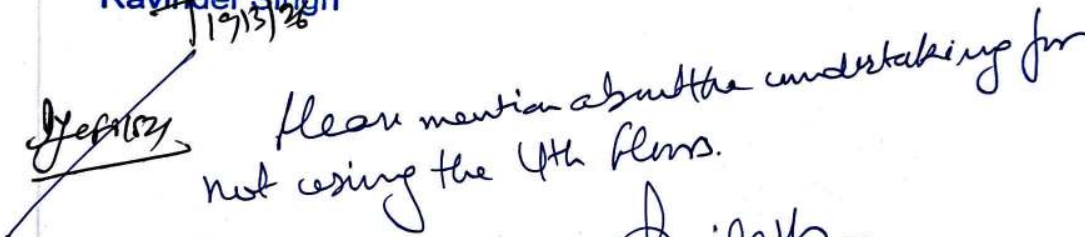 Ravinder Singh
19/3/26
Please mention about the undertaking for
not using the 4th floors.